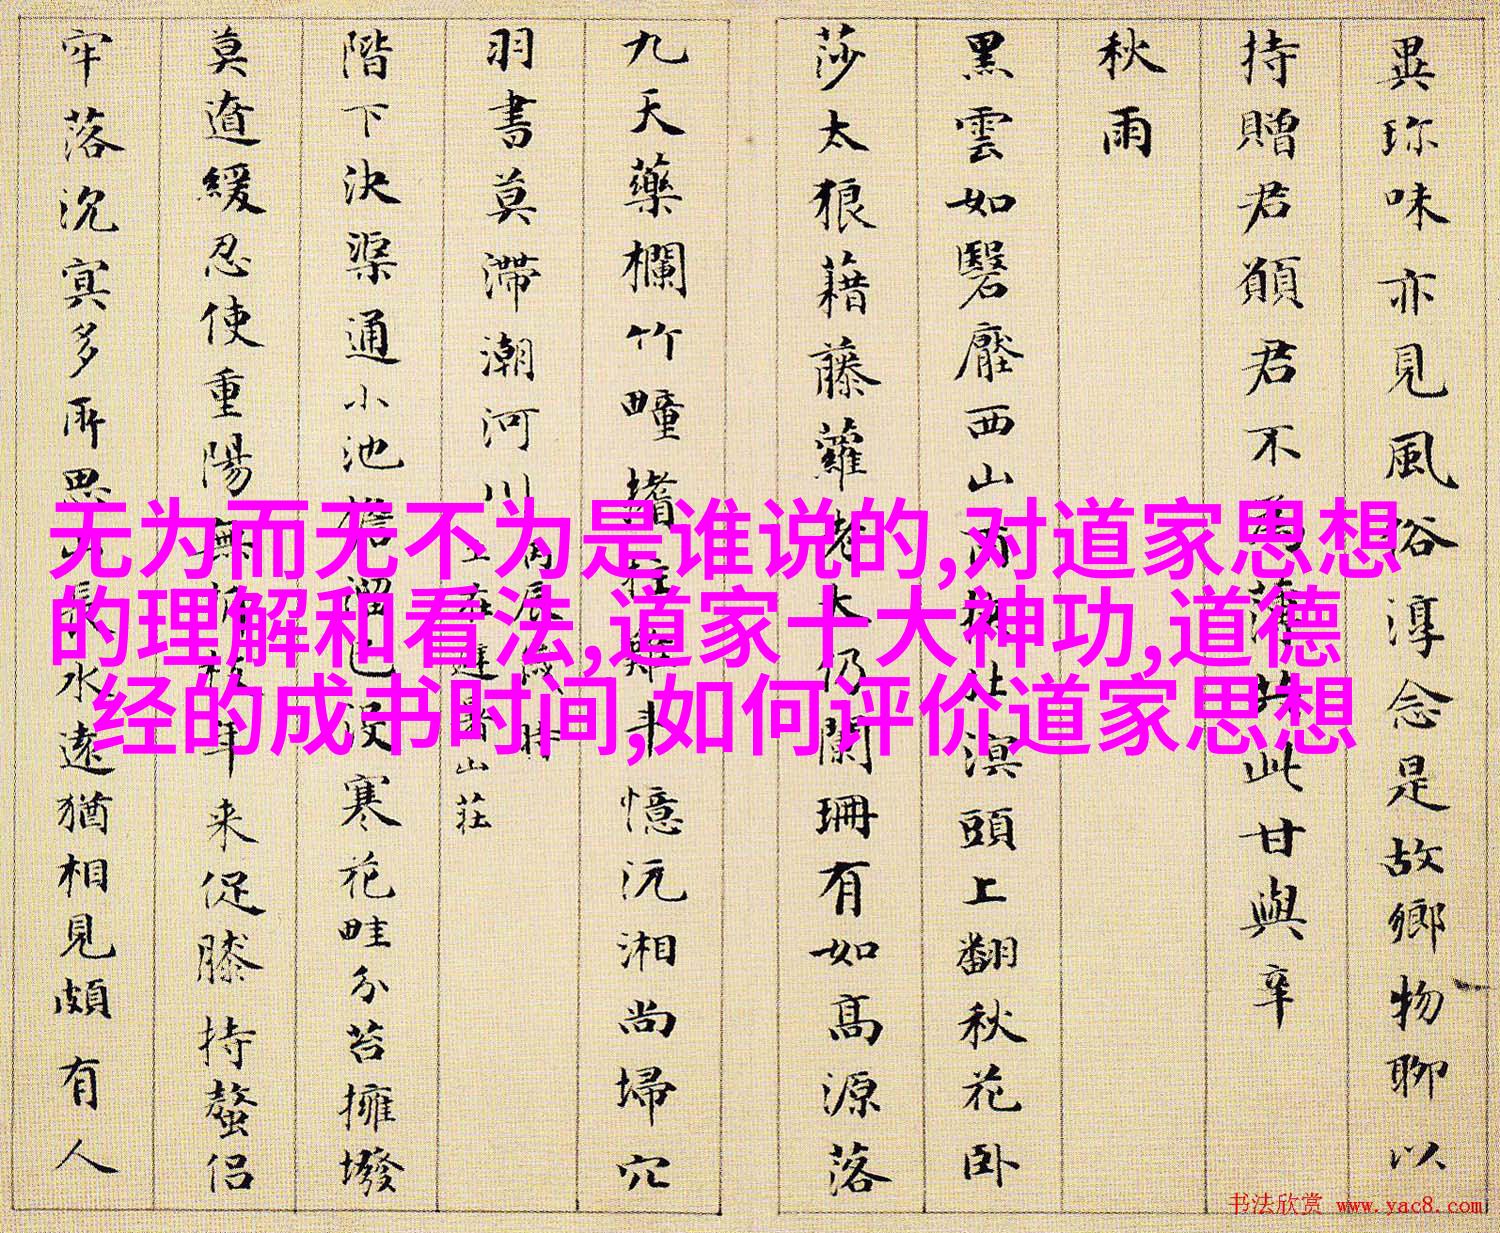 異珎味亦見風俗淳念是故鄉物聊以
持贈君願君不為薄此甘與辛
秋雨
黑雲如翳壓西山雨頭上翻秋花卧
莎太狼藉藤蘿老大仍闌珊有如高源落
九天藥欄竹疃堵憶沅湘尚埽穴
羽書莫滯潮河川
山莊
階下決渠通小池寒花畦分苔擁撥
莫道緩忍使重陽無年来促膝持螯侶
牢落沉冥多所思水遠猶相見頗有人
无为而无不为是谁说的,对道家思想
的理解和看法,道家十大神功,道德
经的成书时间,如何评价道家思想
书法欣赏 www.yac8.com